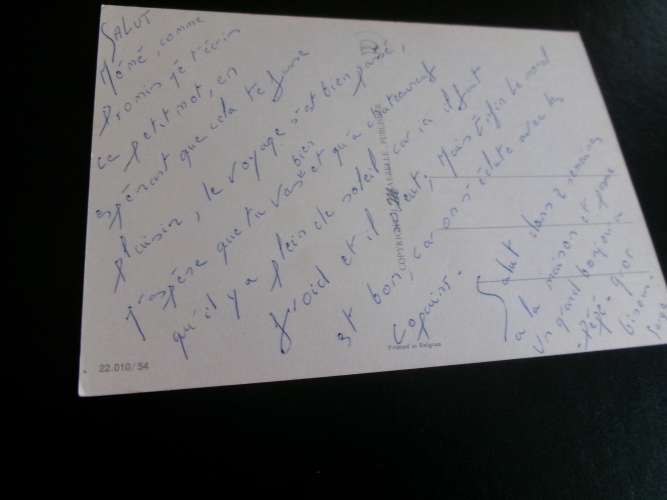 SALUT
Mémé, comme
promis je t'écris
ce petit mot, en
espérant que cela te fasse
plaisir, le voyage s'est bien passé,
j'espère que tu vas bien et qu'à chateauneuf
qu'il y a plein de soleil car ici il fait
froid et il pleut, mais enfin le moral
est bon, car on s'éclate avec les
copains.
Salut dans 2 semaines
a la maison et passe
un grand bonjour a
pépé. gros
bisous.
COPYRIGHT
Printed in Belgium
22.010/54